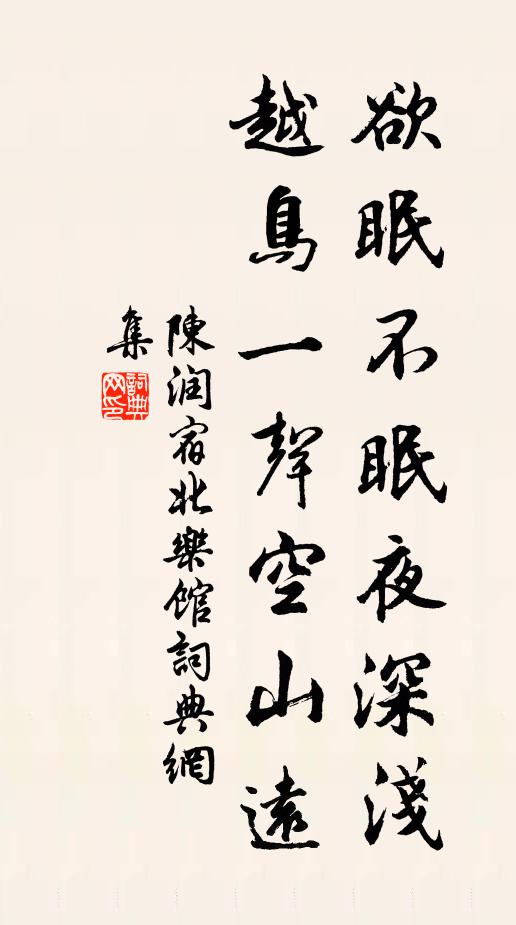 欲眠不眠夜深淺
越鳥一聲空山遠
陳润宿北樂館詞典網
集
詞典
网印